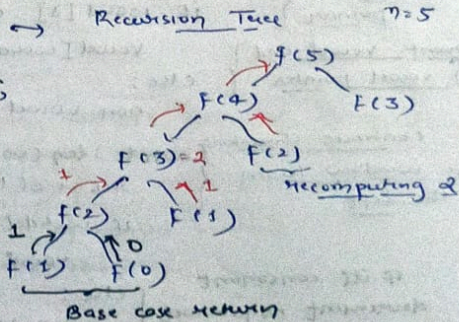 ↔ Recursion Tree n=5
f(5)
F(4) F(3)
F(3)=2 F(2)
recomputing 2
1 1
f(2) F(1)
1 0
F(1) F(0)
Base case return